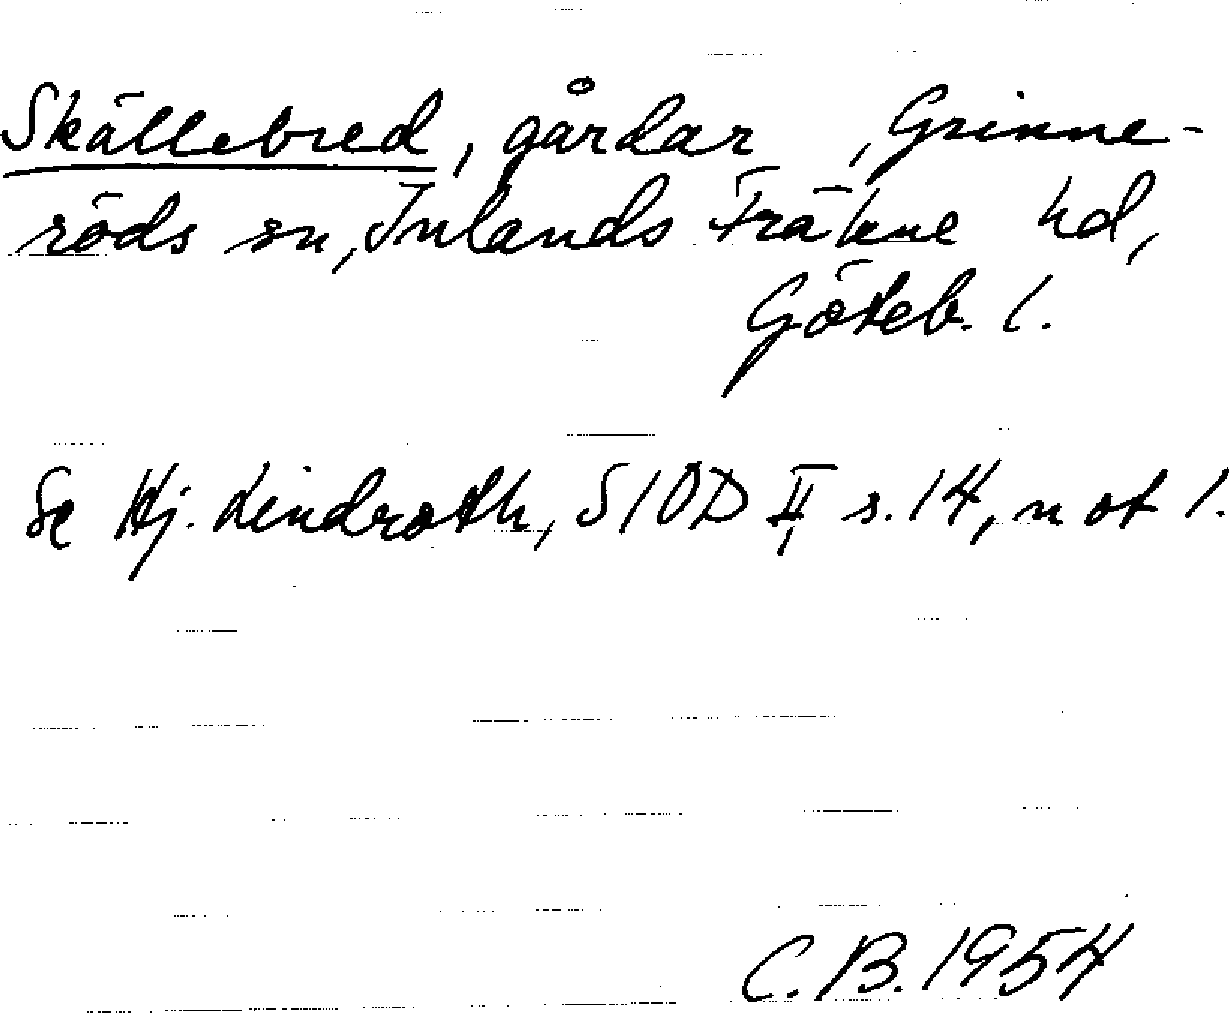 Skällebred, gårdar, Grinne-
röds sn, Inlands Fräkne hd,
Göteb. l.
Se Hj. Lindroth, SIOD II, s. 14, not 1.
C. B. 1954